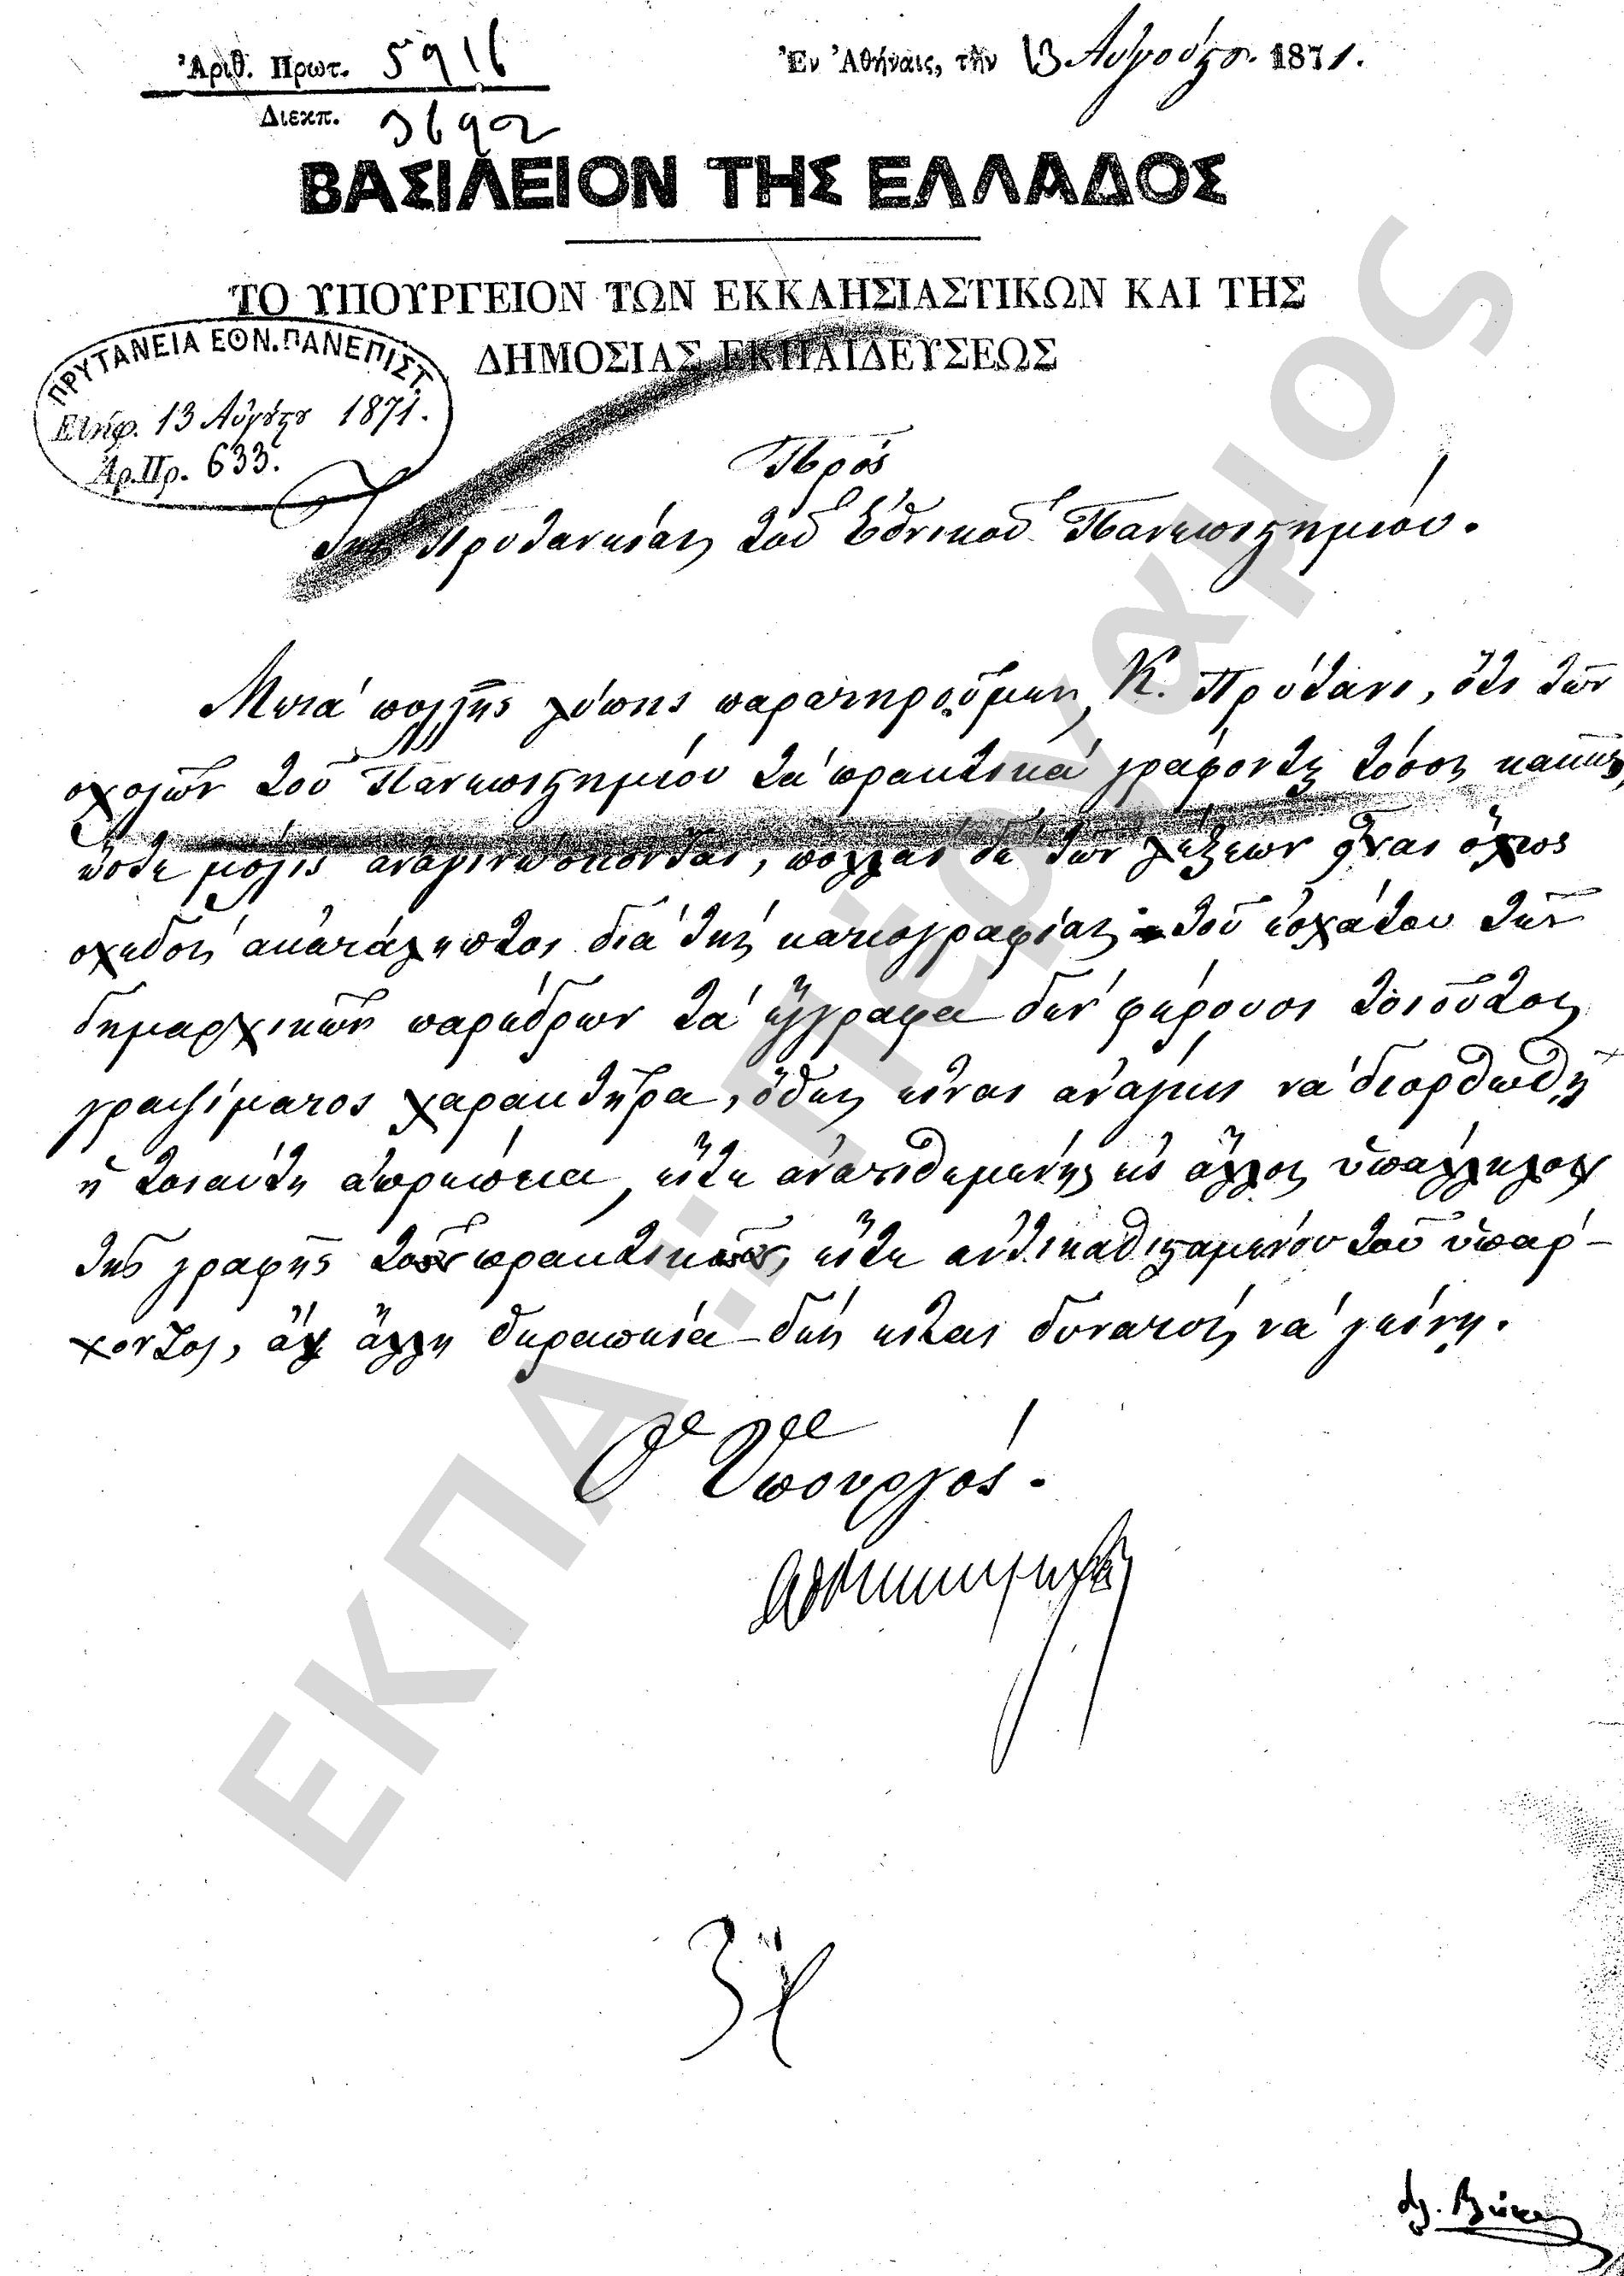 Ἀριθ. Πρωτ. 5916
Διεκπ. 3692
Ἐν Ἀθήναις, τὴν 13 Αὐγούστου 1871.
ΒΑΣΙΛΕΙΟΝ ΤΗΣ ΕΛΛΑΔΟΣ
ΤΟ ΥΠΟΥΡΓΕΙΟΝ ΤΩΝ ΕΚΚΛΗΣΙΑΣΤΙΚΩΝ ΚΑΙ ΤΗΣ
ΔΗΜΟΣΙΑΣ ΕΚΠΑΙΔΕΥΣΕΩΣ
ΠΡΥΤΑΝΕΙΑ ΕΘΝ. ΠΑΝΕΠΙΣΤ.
Ἐλήφ. 13 Αὐγούστου 1871.
Ἀρ. Πρ. 633.
Πρὸς
τὴν Πρυτανείαν τοῦ Ἐθνικοῦ Πανεπιστημίου.
Μετὰ πολλῆς λύπης παρατηροῦμεν, Κ. Πρύτανι, ὅτι τῶν
σχολῶν τοῦ Πανεπιστημίου τὰ πρακτικὰ γράφονται τόσον κακῶς,
ὥστε μόλις ἀναγινώσκονται, πολλαὶ δὲ τῶν λέξεων εἶναι ὅλως
σχεδὸν ἀκατάληπτοι διὰ τὴν κακογραφίαν τοῦ ἐσχάτου τῶν
δημαρχικῶν παρέδρων τὰ ἔγγραφα δὲν φέρουσι τοιοῦτον
γραψίματος χαρακτῆρα, ὅθεν εἶναι ἀνάγκη νὰ διορθωθῇ
ἡ τοιαύτη ἀπρέπεια, εἴτε ἀνατιθεμένης εἰς ἄλλον ὑπάλληλον
τῆς γραφῆς τῶν πρακτικῶν, εἴτε ἀντικαθισταμένου τοῦ ὑπάρ-
χοντος, ἂν ἄλλη θεραπεία δὲν εἶναι δυνατὸν νὰ γείνῃ.
Ὁ Ὑπουργός.
ΕΚΠΑ.: Πέργαμος